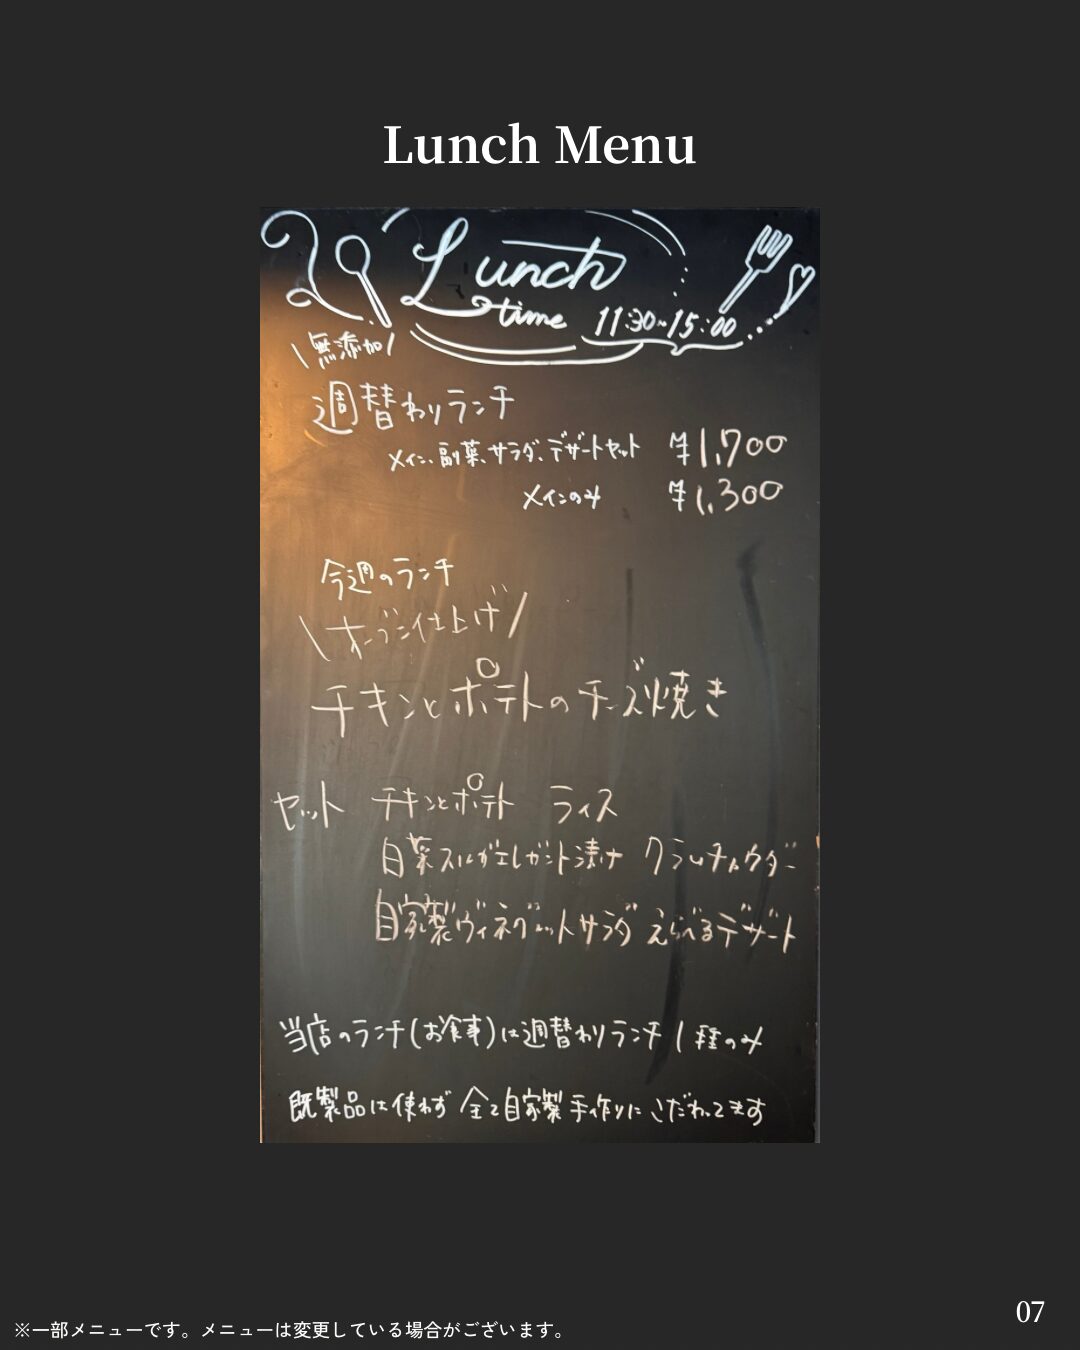 Lunch Menu
Lunch
time 11:30~15:00
\無添加/
週替わりランチ
メイン、副菜、サラダ、デザートセット ¥1,700
メインのみ ¥1,300
今週のランチ
\オーブン仕上げ/
チキンとポテトのチーズ焼き
セット チキンとポテト ライス
白菜スルガエレガント漬け クラムチャウダー
自家製ヴィネグレットサラダ えらべるデザート
当店のランチ(お食事)は週替わりランチ1種のみ
既製品は使わず 全て自家製手作りにこだわってます
07
※一部メニューです。メニューは変更している場合がございます。